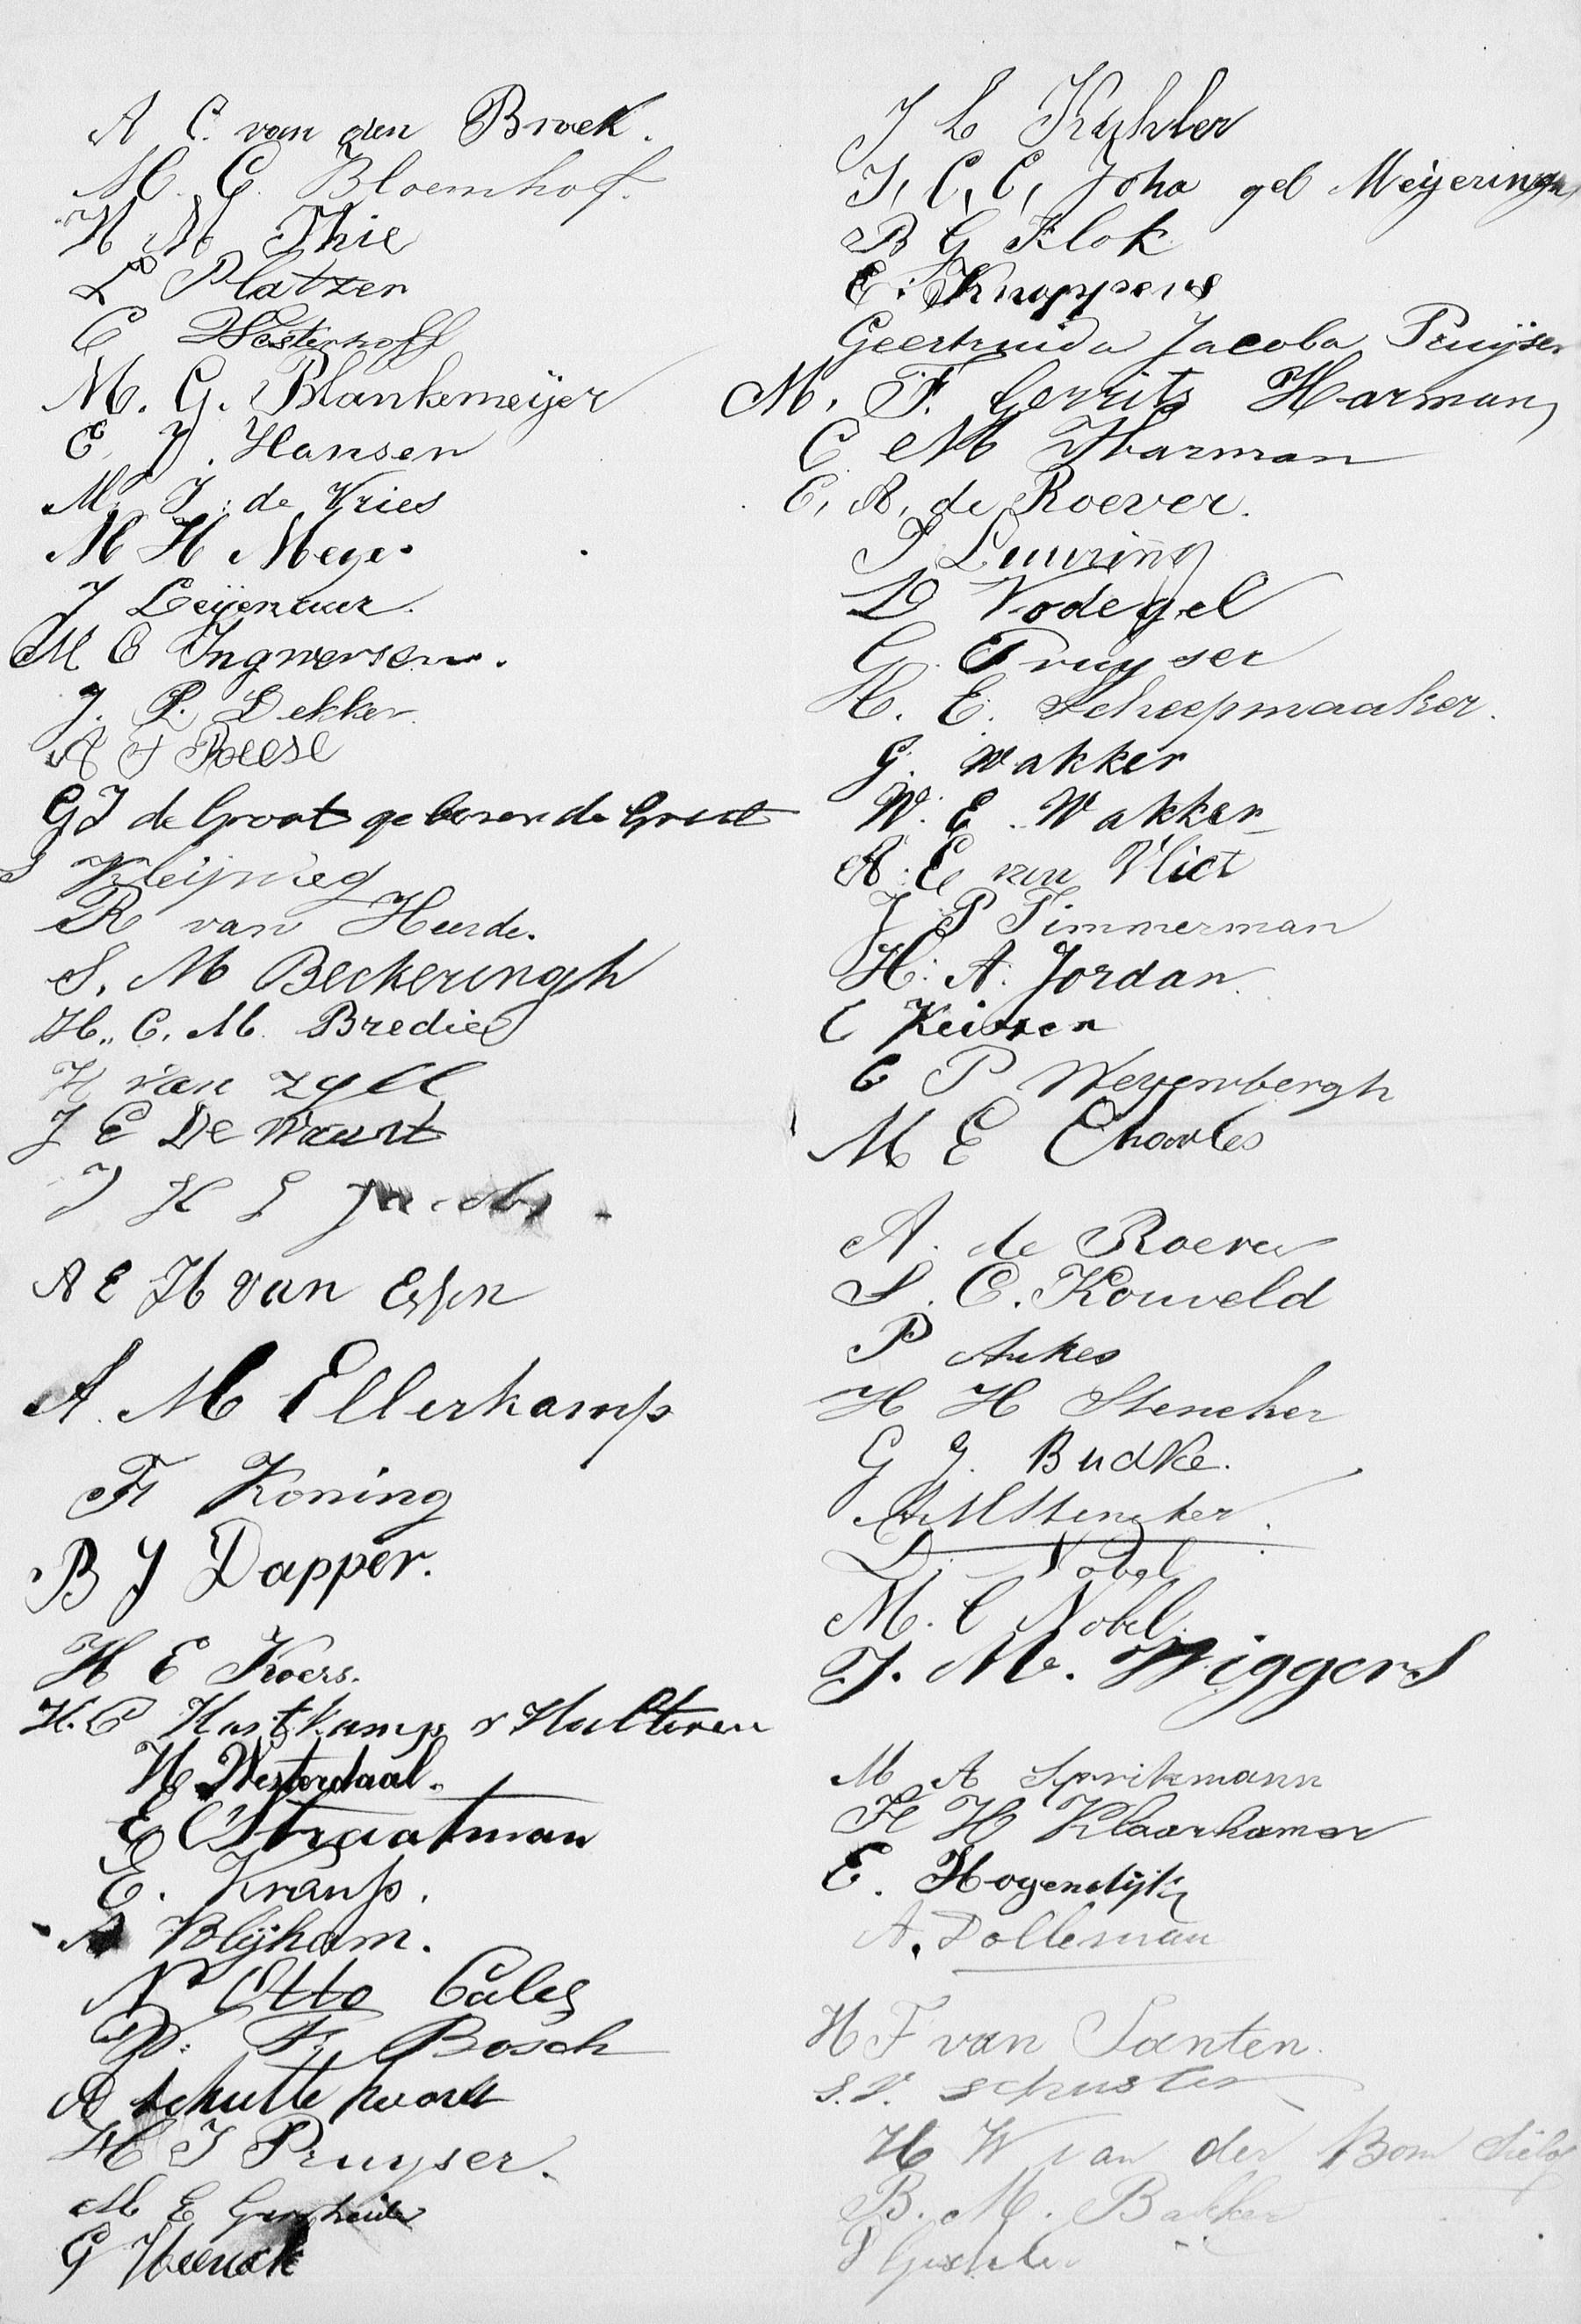 A C. van den Broek.
M. G. Bloemhof.
H M Thie
L Platzer
C Westerhoff
M. G. Blankemeijer
E. J. Hansen
M. J. de Vries
M H Meye
J Leijenaar.
M E Ingwersen.
J. P. Dekker.
A J Reese
G J de Groot geboren de Groot
Kleijweg
R van Heerde.
S. M Beckeringh
H. C. M. Bredie
H van Zyll
J E De Waart
J H Jacobs
A E H van Essen
A. M Ellerkamp
F Koning
B J Dapper.
H E Koers.
H. C Hastkamp v Halteren
H Westerdaal.
E C Straatman
E. Kranss.
A Blijham.
N Otto Cales
F. Bosch
A Schuttevoort
H J Pruyser.
M E
G Weenck
J L Kuhler
J, C, C, Joha geb Meijeringh
B G Klok
E. Knoppers
Geertruida Jacoba Pruijser
M. F. Gerrits Harman
C M Harman
C. A. de Roever.
Luuring
D Vodegel
G. Pruyser
H. E. Scheepmaaker.
G. Wakker
W. E. Wakker
A. E van Vliet
J P Timmerman
H. A. Jordan.
C Keissen
C P Weyembergh
M E Charles
A. de Roever
S. C. Kouveld
P Aukes
H H Stencher
G J. Budke.
A M Stencker.
D. Nobel
M. C Nobel.
J. M. Wiggers
M A Sprikmann
H H Klaarhamer
E. Hogendijk
A. Dolleman
H F van Santen.
S. V. Schuster
H W van der Bom
B. M. Bakker